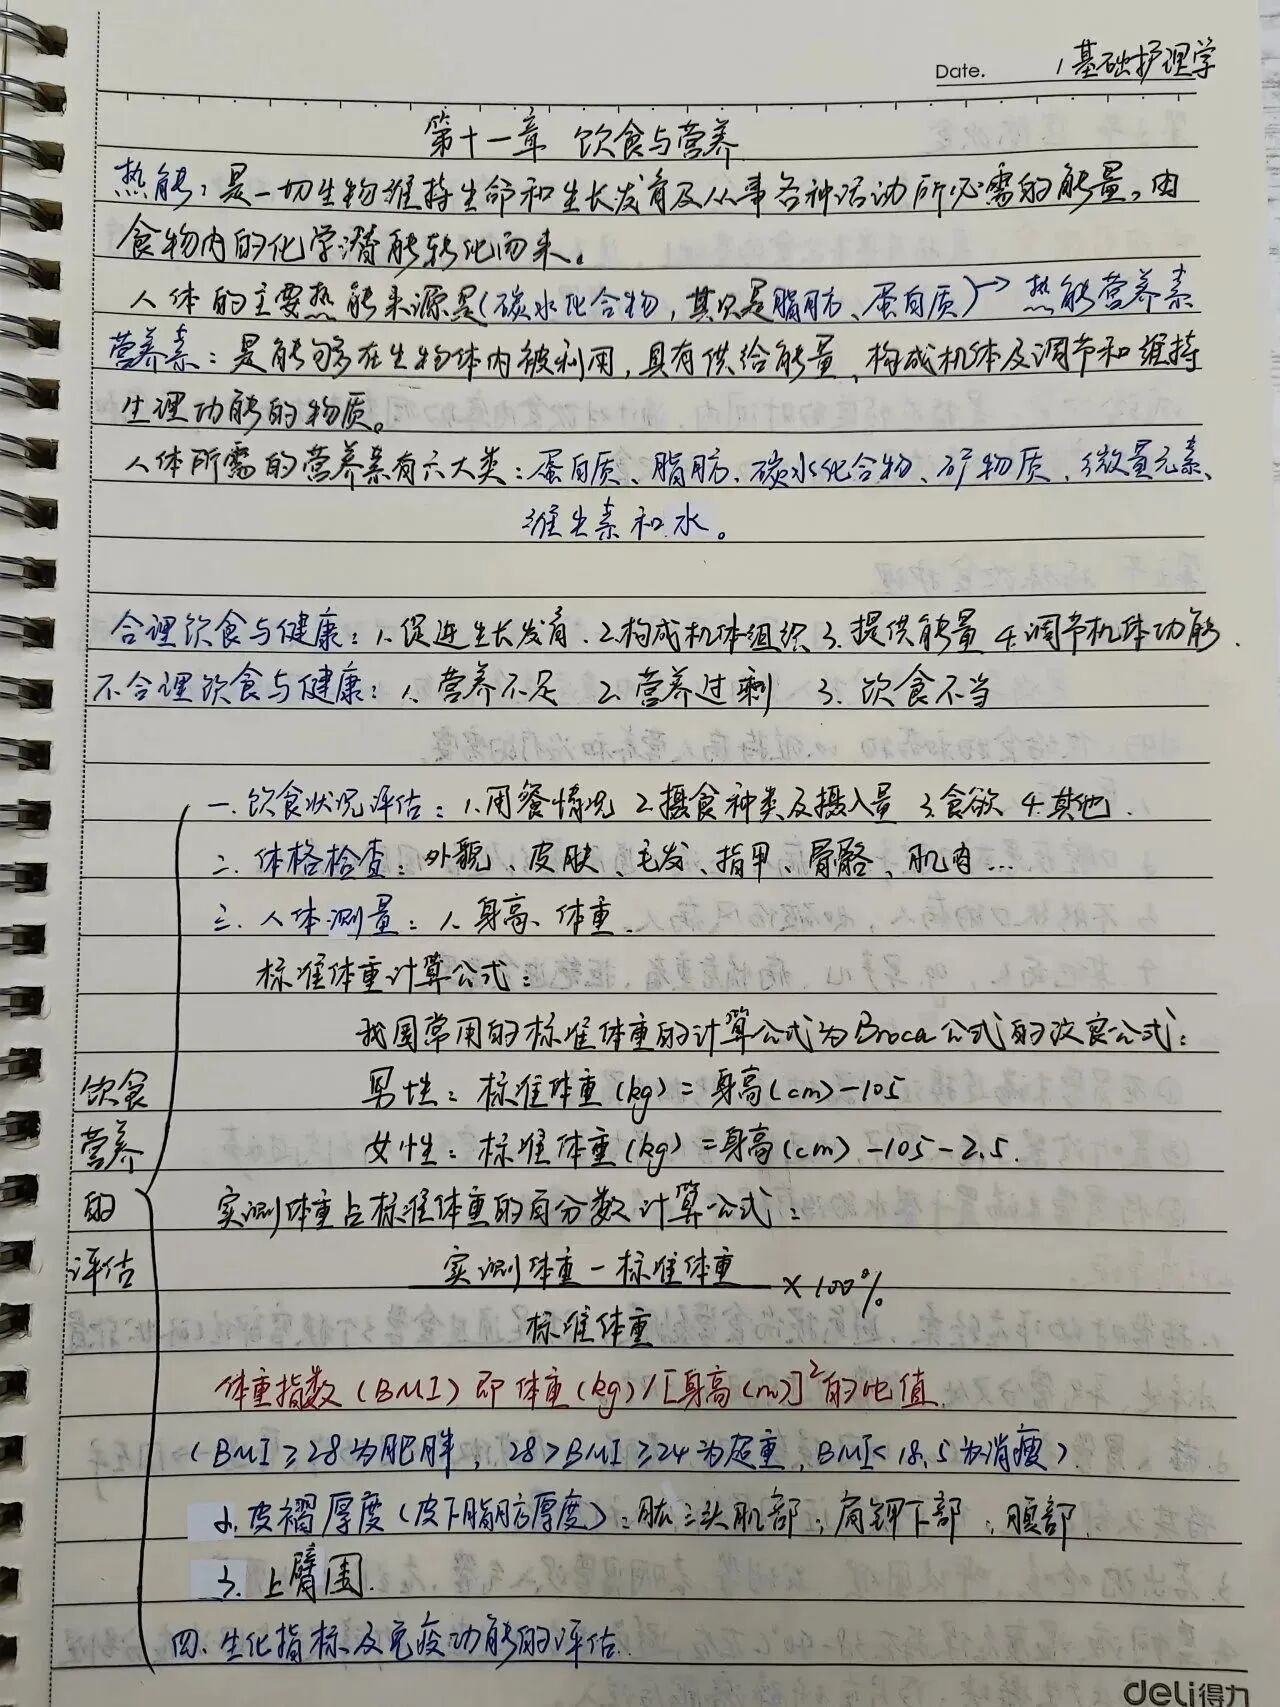 Date. 基础护理学
第十一章 饮食与营养
热能：是一切生物维持生命和生长发育及从事各种活动所必需的能量。由
食物内的化学潜能转化而来。
人体的主要热能来源是(碳水化合物，其次是脂肪、蛋白质)→热能营养素
营养素：是能够在生物体内被利用，具有供给能量、构成机体及调节和维持
生理功能的物质。
人体所需的营养素有六大类：蛋白质、脂肪、碳水化合物、矿物质、微量元素、
维生素和水。
合理饮食与健康：1.促进生长发育.2.构成机体组织3.提供能量 4.调节机体功能.
不合理饮食与健康：1.营养不足 2.营养过剩 3.饮食不当
饮食
营养
的
评估
一.饮食状况评估：1.用餐情况 2.摄食种类及摄入量 3.食欲 4.其他.
二.体格检查：外貌、皮肤、毛发、指甲、骨骼、肌肉...
三.人体测量：1.身高、体重.
标准体重计算公式：
我国常用的标准体重的计算公式为Broca公式的改良公式：
男性：标准体重(kg)=身高(cm)-105
女性：标准体重(kg)=身高(cm)-105-2.5.
实测体重占标准体重的百分数计算公式：
实测体重-标准体重
×100%
标准体重
体重指数(BMI)即体重(kg)/[身高(m)]²的比值.
(BMI≥28为肥胖，28>BMI≥24为超重，BMI<18.5为消瘦)
2.皮褶厚度(皮下脂肪厚度)：肱三头肌部；肩钾下部；腹部.
3.上臂围.
四.生化指标及免疫功能的评估.
deli得力